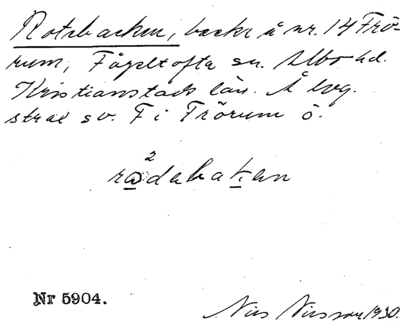 Rotabacken, backe å nr. 14 Frö-
rum, Fågeltofta sn. Albo hd.
Kristianstads län. Å lvg.
strax sv. F i Frörum ö.
2
rådabakan
Nr 5904.
Nils Nilsson 1930.